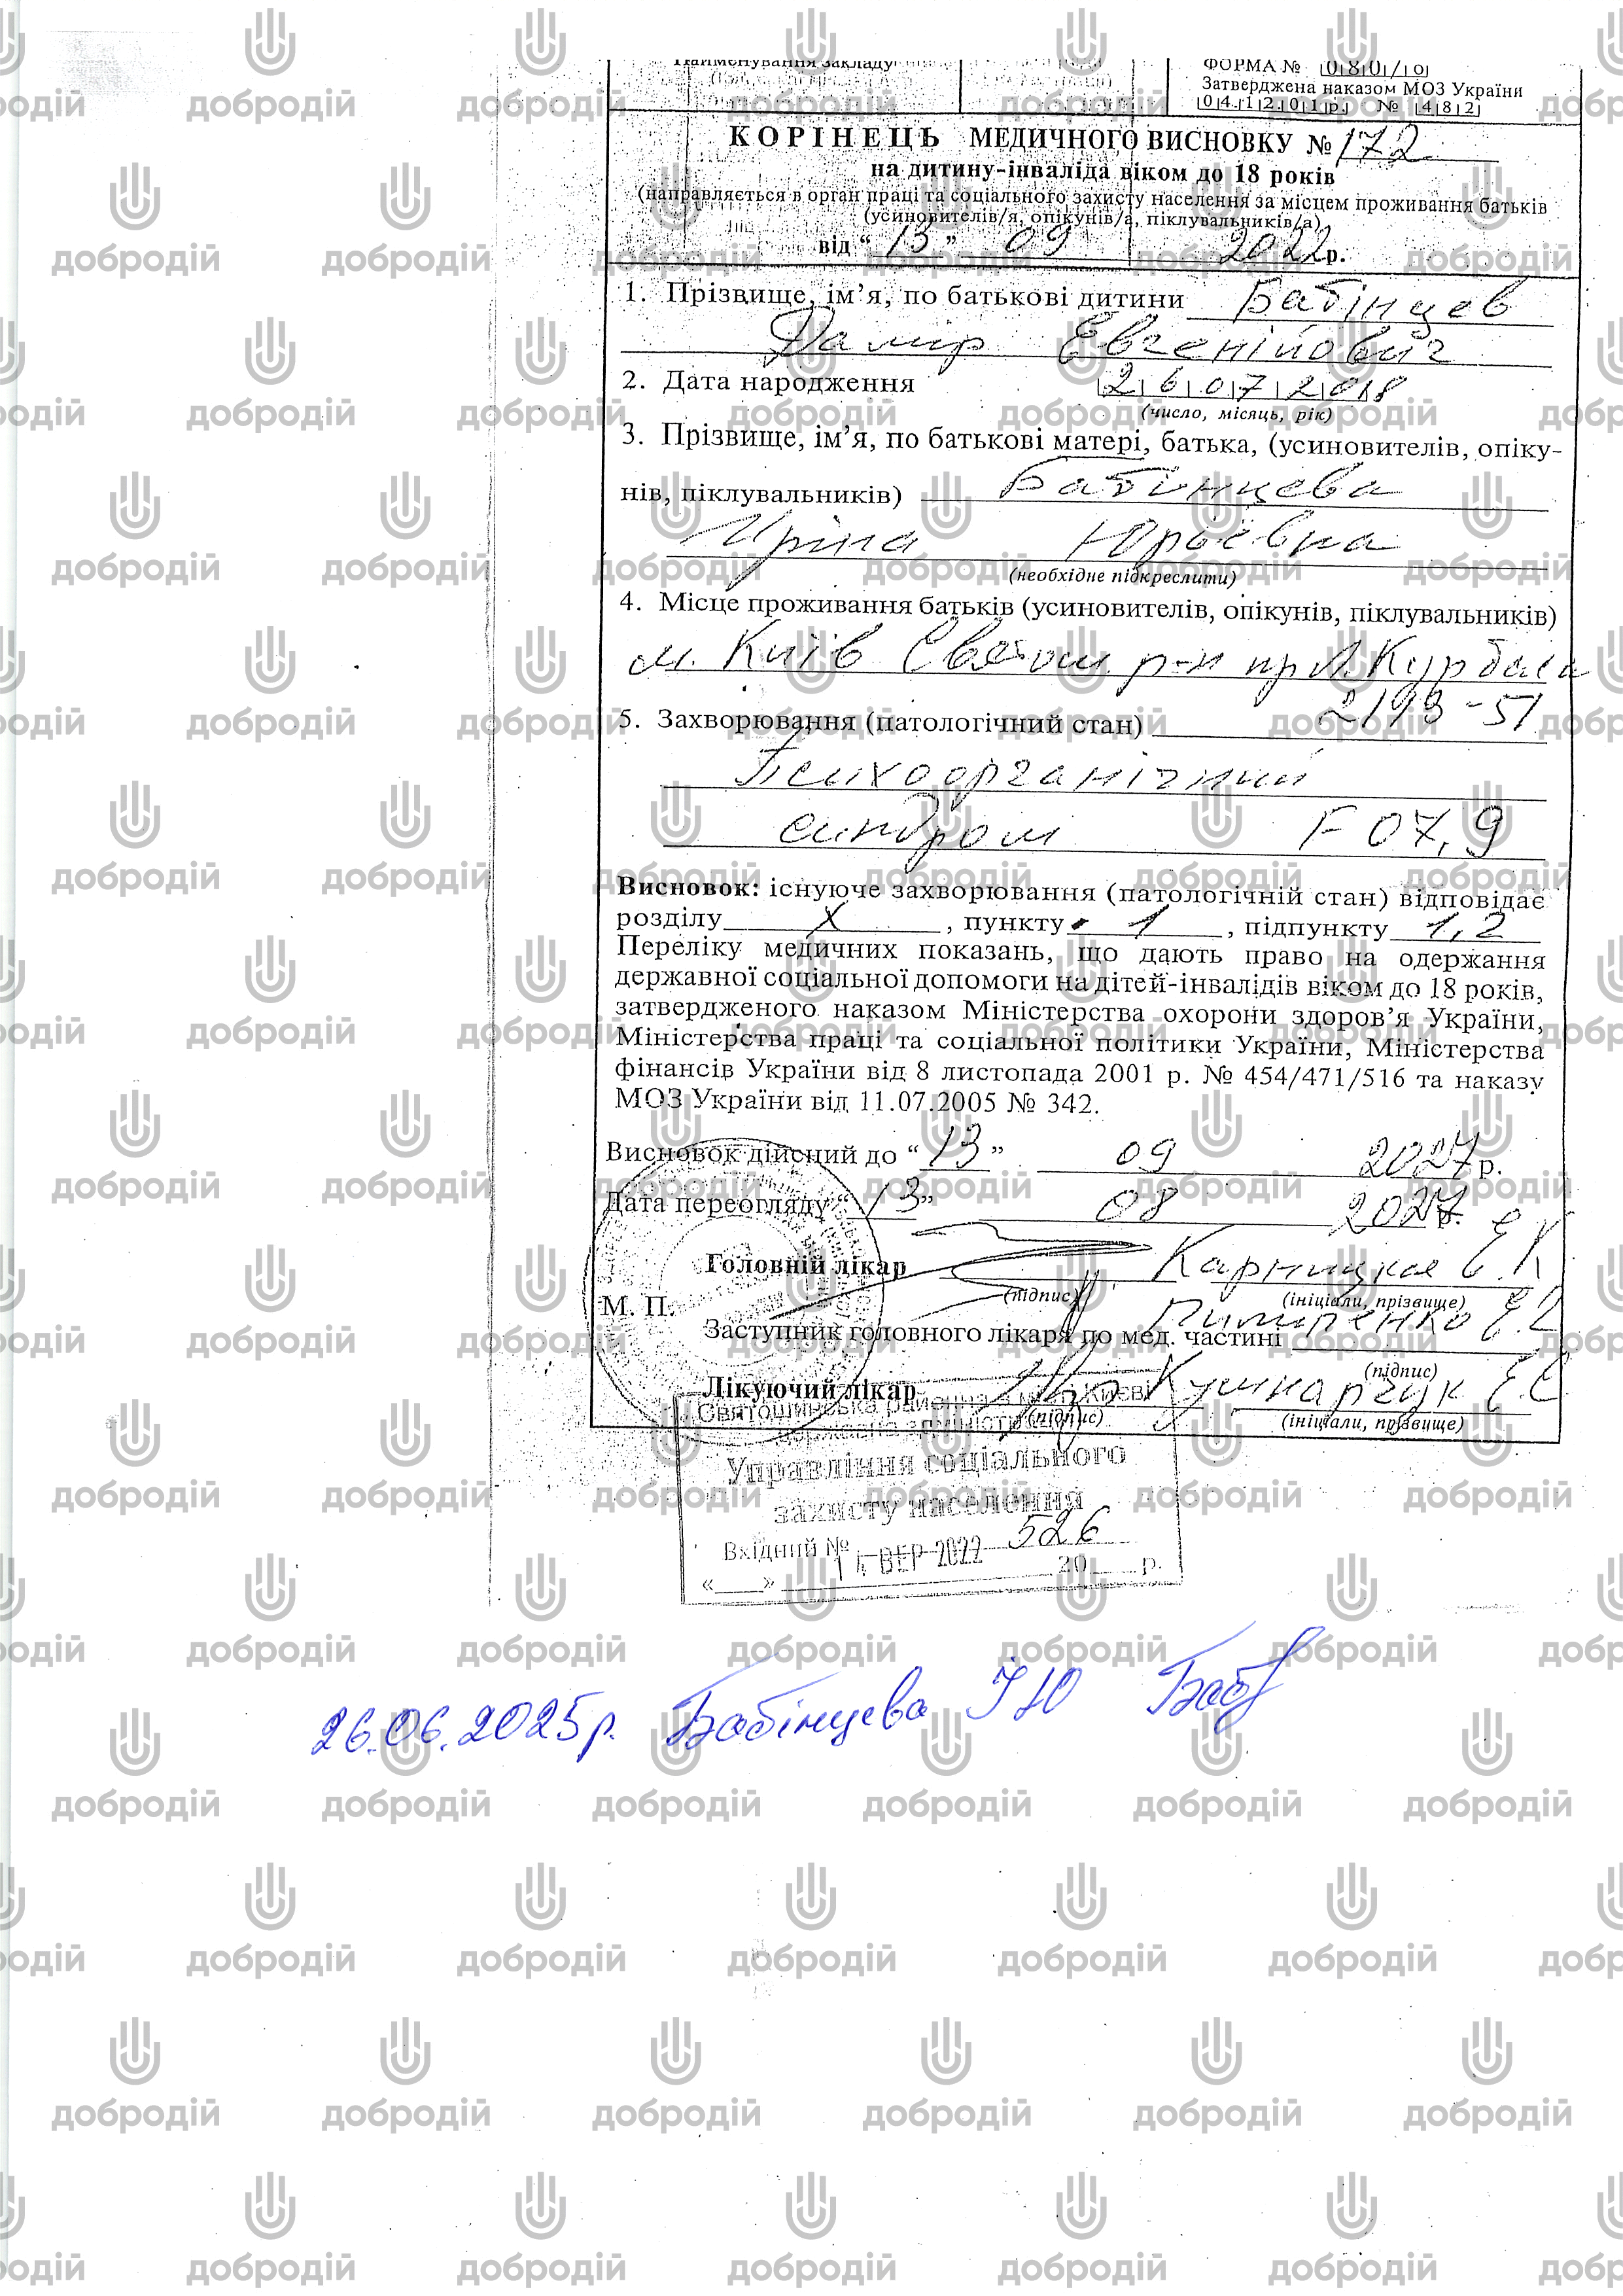 Найменування закладу
ФОРМА № 080/о
Затверджена наказом МОЗ України
04.12.01р. № 482
КОРІНЕЦЬ МЕДИЧНОГО ВИСНОВКУ № 172
на дитину-інваліда віком до 18 років
(направляється в орган праці та соціального захисту населення за місцем проживання батьків
(усиновителів/я, опікунів/а, піклувальників/а)
від “ 13 ” 09 2022 р.
1. Прізвище, ім’я, по батькові дитини Бабінцев
Дамір Євгенійович
2. Дата народження 26072018
(число, місяць, рік)
3. Прізвище, ім’я, по батькові матері, батька, (усиновителів, опіку-
нів, піклувальників) Бабінцева
Ірина Юріївна
(необхідне підкреслити)
4. Місце проживання батьків (усиновителів, опікунів, піклувальників)
м. Київ Святош р-н пр Л. Курбаса
5. Захворювання (патологічний стан)
Психоорганічний
синдром F 07,9
Висновок: існуюче захворювання (патологічній стан) відповідає
розділу X , пункту 1 , підпункту 1,2
Переліку медичних показань, що дають право на одержання
державної соціальної допомоги на дітей-інвалідів віком до 18 років,
затвердженого наказом Міністерства охорони здоров’я України,
Міністерства праці та соціальної політики України, Міністерства
фінансів України від 8 листопада 2001 р. № 454/471/516 та наказу
МОЗ України від 11.07.2005 № 342.
Висновок дійсний до “ 13 ” 09 2027 р.
Дата переогляду “ 13 ” 08 2027 р.
Головній лікар
(підпис) (ініціали, прізвище)
М. П.
Заступник головного лікаря по мед. частині
(підпис)
Лікуючий лікар Кушнарчук Є.С
(підпис) (ініціали, прізвище)
Святошинська районна в місті Києві
державна адміністрація
Управління соціального
захисту населення
Вхідний № 526
14 ВЕР 2022
«___» 20___ р.
26.06.2025р. Бабінцева І Ю
добродій